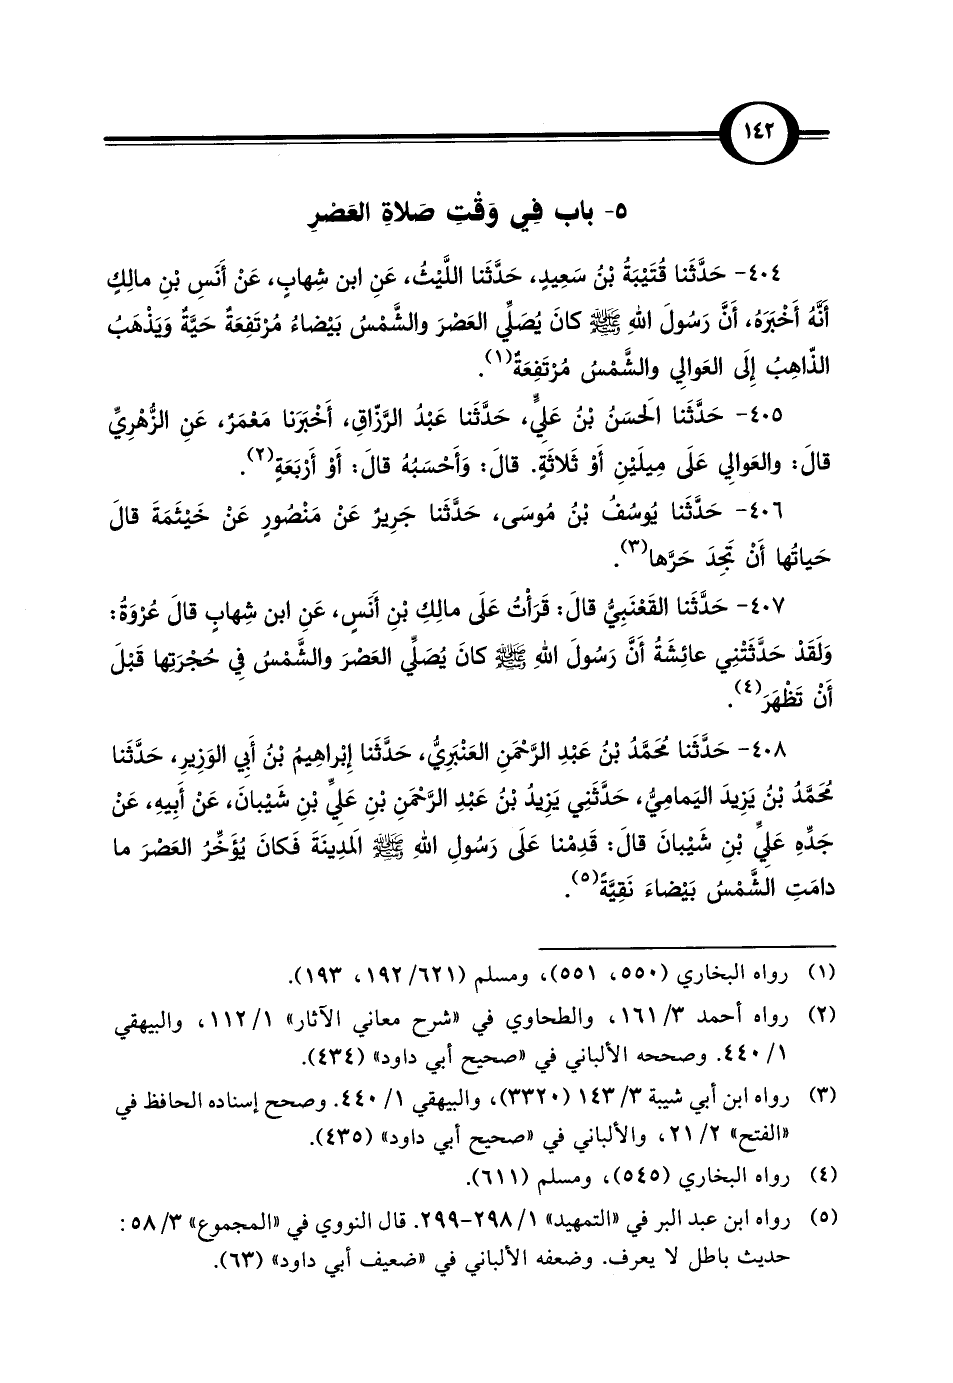 ١٤٢
٥- باب فِي وَقْتِ صَلاةِ العَصْرِ
٤٠٤- حَدَّثَنا قُتَيْبَةُ بْنُ سَعِيدٍ، حَدَّثَنا اللَّيْثُ، عَنِ ابن شِهابٍ، عَنْ أَنَسِ بْنِ مالِكٍ
أَنَّهُ أَخْبَرَهُ، أَنَّ رَسُولَ اللهِ ﷺ كانَ يُصَلِّي العَصْرَ والشَّمْسُ بَيْضاءُ مُرْتَفِعَةٌ حَيَّةٌ وَيَذْهَبُ
الذّاهِبُ إِلَى العَوالِي والشَّمْسُ مُرْتَفِعَةٌ(١).
٤٠٥- حَدَّثَنا الحَسَنُ بْنُ عَلِيٍّ، حَدَّثَنا عَبْدُ الرَّزّاقِ، أَخْبَرَنا مَعْمَرٌ، عَنِ الزُّهْرِيِّ
قالَ: والعَوالِي عَلَى مِيلَيْنِ أَوْ ثَلاثَةٍ. قالَ: وَأَحْسَبُهُ قالَ: أَوْ أَرْبَعَةٍ(٢).
٤٠٦- حَدَّثَنا يُوسُفُ بْنُ مُوسَى، حَدَّثَنا جَرِيرٌ عَنْ مَنْصُورٍ عَنْ خَيْثَمَةَ قالَ
حَياتُها أَنْ تَجِدَ حَرَّها(٣).
٤٠٧- حَدَّثَنا القَعْنَبِيُّ قالَ: قَرَأْتُ عَلَى مالِكِ بْنِ أَنَسٍ، عَنِ ابن شِهابٍ قالَ عُرْوَةُ:
وَلَقَدْ حَدَّثَتْنِي عائِشَةُ أَنَّ رَسُولَ اللهِ ﷺ كانَ يُصَلِّي العَصْرَ والشَّمْسُ فِي حُجْرَتِها قَبْلَ
أَنْ تَظْهَرَ(٤).
٤٠٨- حَدَّثَنا مُحَمَّدُ بْنُ عَبْدِ الرَّحْمَنِ العَنْبَرِيُّ، حَدَّثَنا إِبْراهِيمُ بْنُ أَبِي الوَزِيرِ، حَدَّثَنا
مُحَمَّدُ بْنُ يَزِيدَ اليَمامِيُّ، حَدَّثَنِي يَزِيدُ بْنُ عَبْدِ الرَّحْمَنِ بْنِ عَلِيِّ بْنِ شَيْبانَ، عَنْ أَبِيهِ، عَنْ
جَدِّهِ عَلِيِّ بْنِ شَيْبانَ قالَ: قَدِمْنا عَلَى رَسُولِ اللهِ ﷺ المَدِينَةَ فَكانَ يُؤَخِّرُ العَصْرَ ما
دامَتِ الشَّمْسُ بَيْضاءَ نَقِيَّةً(٥).
(١) رواه البخاري (٥٥٠، ٥٥١)، ومسلم (٦٢١/ ١٩٢، ١٩٣).
(٢) رواه أحمد ٣/ ١٦١، والطحاوي في «شرح معاني الآثار» ١/ ١١٢، والبيهقي
١/ ٤٤٠. وصححه الألباني في «صحيح أبي داود» (٤٣٤).
(٣) رواه ابن أبي شيبة ٣/ ١٤٣ (٣٣٢٠)، والبيهقي ١/ ٤٤٠. وصحح إسناده الحافظ في
«الفتح» ٢/ ٢١، والألباني في «صحيح أبي داود» (٤٣٥).
(٤) رواه البخاري (٥٤٥)، ومسلم (٦١١).
(٥) رواه ابن عبد البر في «التمهيد» ١/ ٢٩٨-٢٩٩. قال النووي في «المجموع» ٣/ ٥٨:
حديث باطل لا يعرف. وضعفه الألباني في «ضعيف أبي داود» (٦٣).